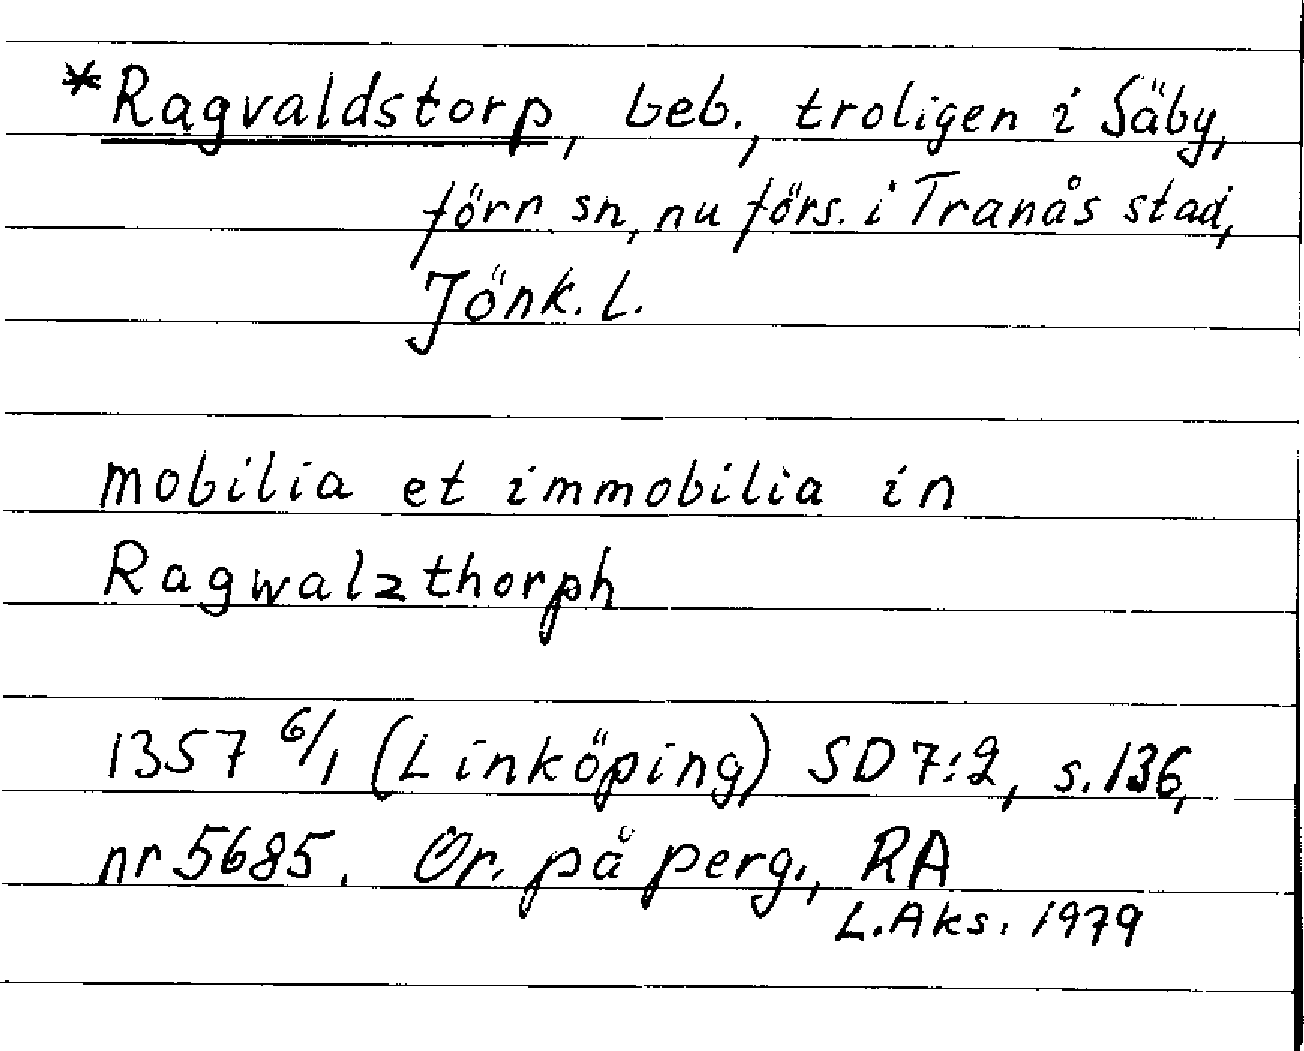 *Ragvaldstorp, beb., troligen i Säby,
förr sn, nu förs. i Tranås stad,
Jönk. l.
mobilia et immobilia in
Ragwalzthorph
1357 6/1 (Linköping) SD 7:2, s. 136,
nr 5685. Or. på perg., RA
L. Aks. 1979